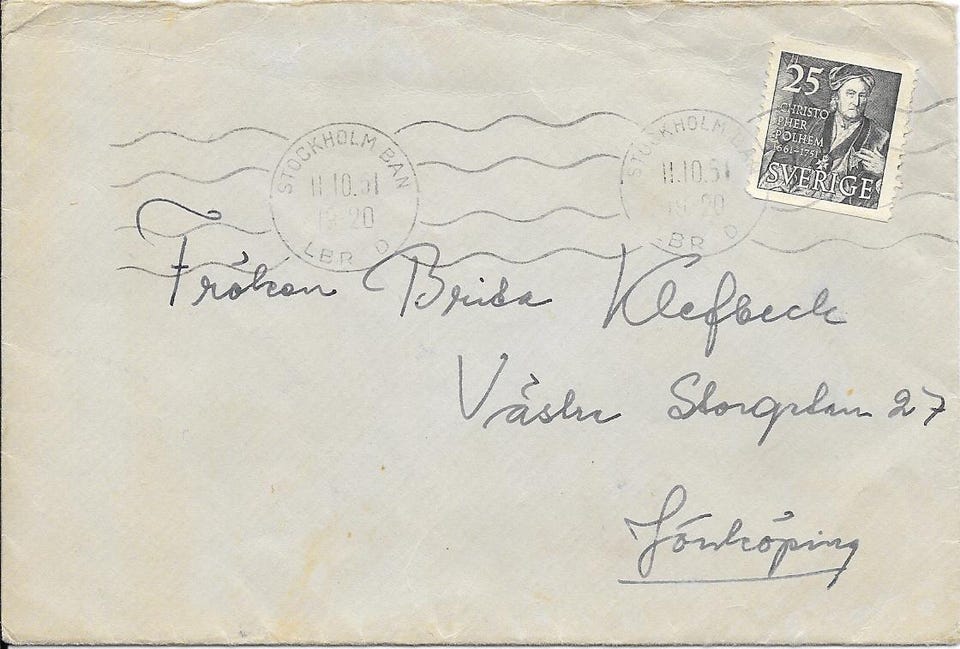 STOCKHOLM BAN
11.10.51
19-20
LBR D
STOCKHOLM BAN
11.10.51
19-20
LBR D
25
CHRISTO
PHER
POLHEM
1661-1751
SVERIGE
Fröken Brita Klefbeck
Västra Storgatan 27
Jönköping